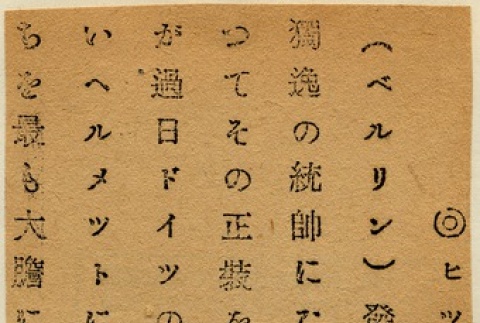 ◎ヒツ
(ベルリン)發
獨逸の統帥にな
つてその正裝を
が過日ドイツの
いヘルメツトに
ちを最も大膽に